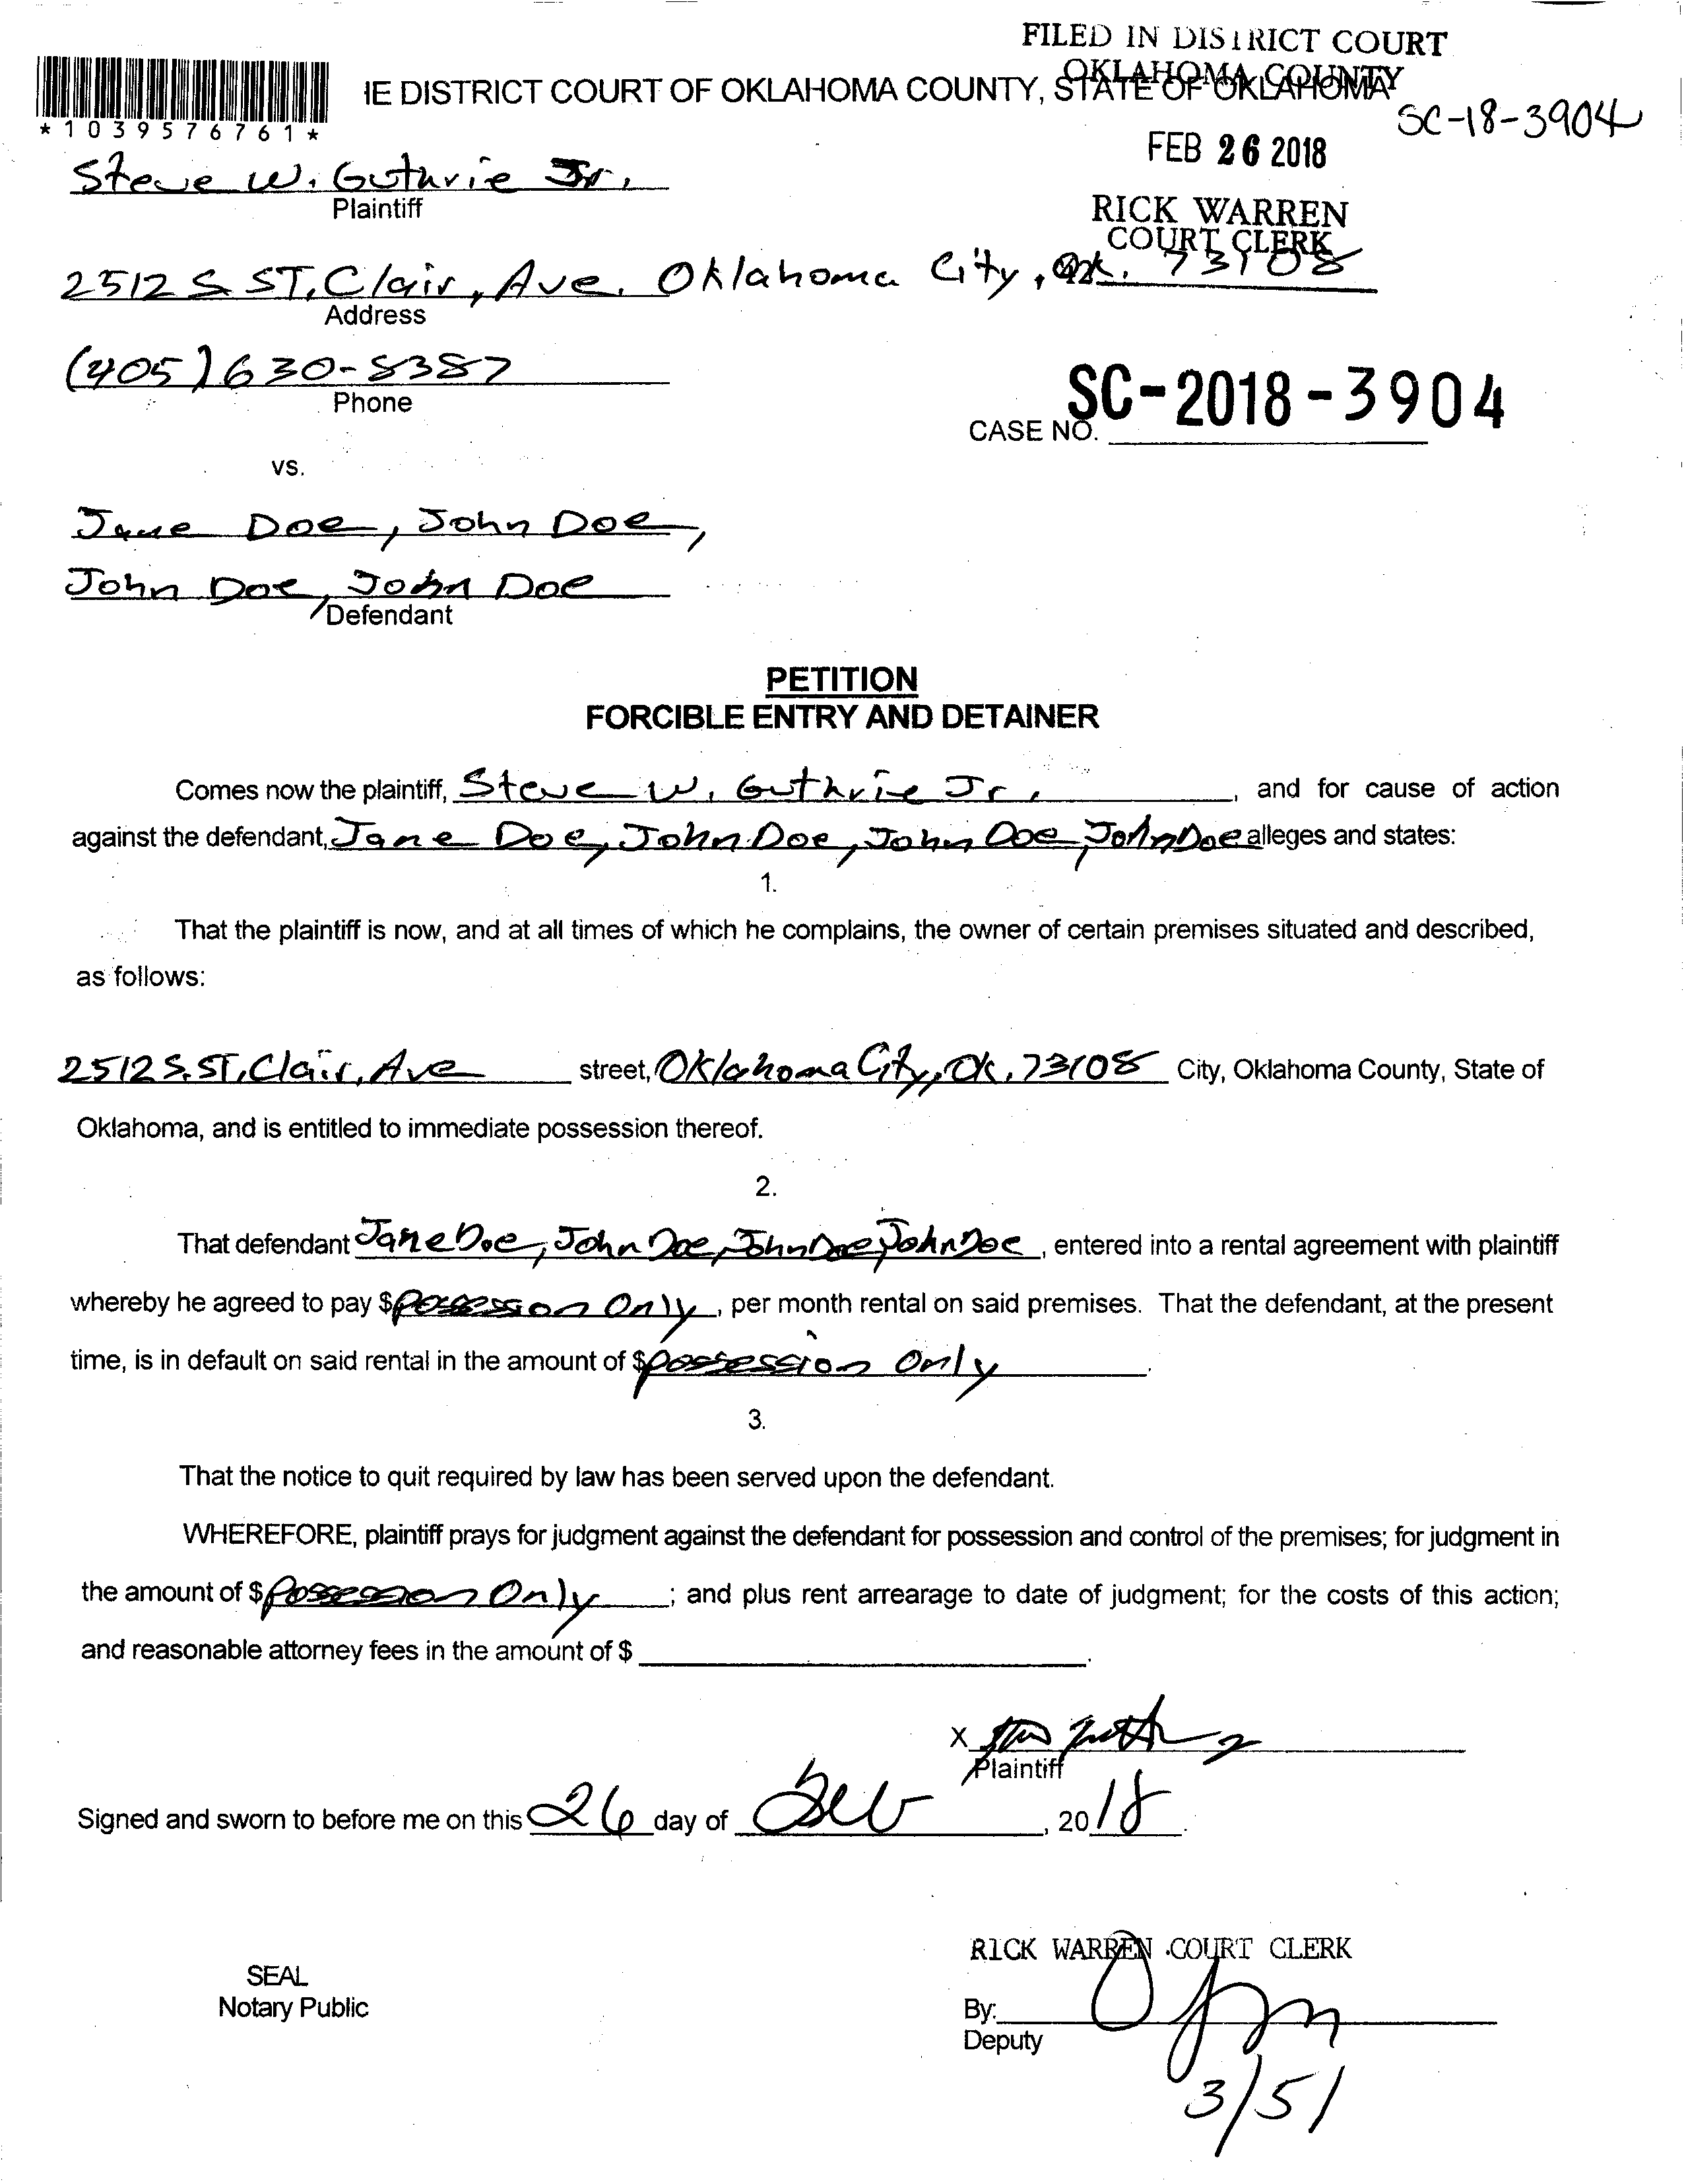 FILED IN DISTRICT COURT
OKLAHOMA COUNTY
IE DISTRICT COURT OF OKLAHOMA COUNTY, STATE OF OKLAHOMA
SC-18-3904
*1039576761*
FEB 26 2018
Steve W. Guthrie Jr.
Plaintiff
RICK WARREN
COURT CLERK
2512 S ST, Clair, Ave. Oklahoma City, Ok. 73108
Address
(405) 630-8387
Phone
CASE NO. SC-2018-3904
vs.
Jane Doe, John Doe,
John Doe, John Doe
Defendant
PETITION
FORCIBLE ENTRY AND DETAINER
Comes now the plaintiff, Steve W. Guthrie Jr., and for cause of action
against the defendant, Jane Doe, John Doe, John Doe, John Doe alleges and states:
1.
That the plaintiff is now, and at all times of which he complains, the owner of certain premises situated and described,
as follows:
2512 S. ST, Clair, Ave street, Oklahoma City, Ok, 73108 City, Oklahoma County, State of
Oklahoma, and is entitled to immediate possession thereof.
2.
That defendant Jane Doe, John Doe, John Doe, John Doe, entered into a rental agreement with plaintiff
whereby he agreed to pay $possession Only, per month rental on said premises. That the defendant, at the present
time, is in default on said rental in the amount of $possession Only.
3.
That the notice to quit required by law has been served upon the defendant.
WHEREFORE, plaintiff prays for judgment against the defendant for possession and control of the premises; for judgment in
the amount of $Possession Only; and plus rent arrearage to date of judgment; for the costs of this action;
and reasonable attorney fees in the amount of $ .
X
Plaintiff
Signed and sworn to before me on this 26 day of Feb, 2018.
RICK WARREN COURT CLERK
SEAL
Notary Public
By:
Deputy
3/51